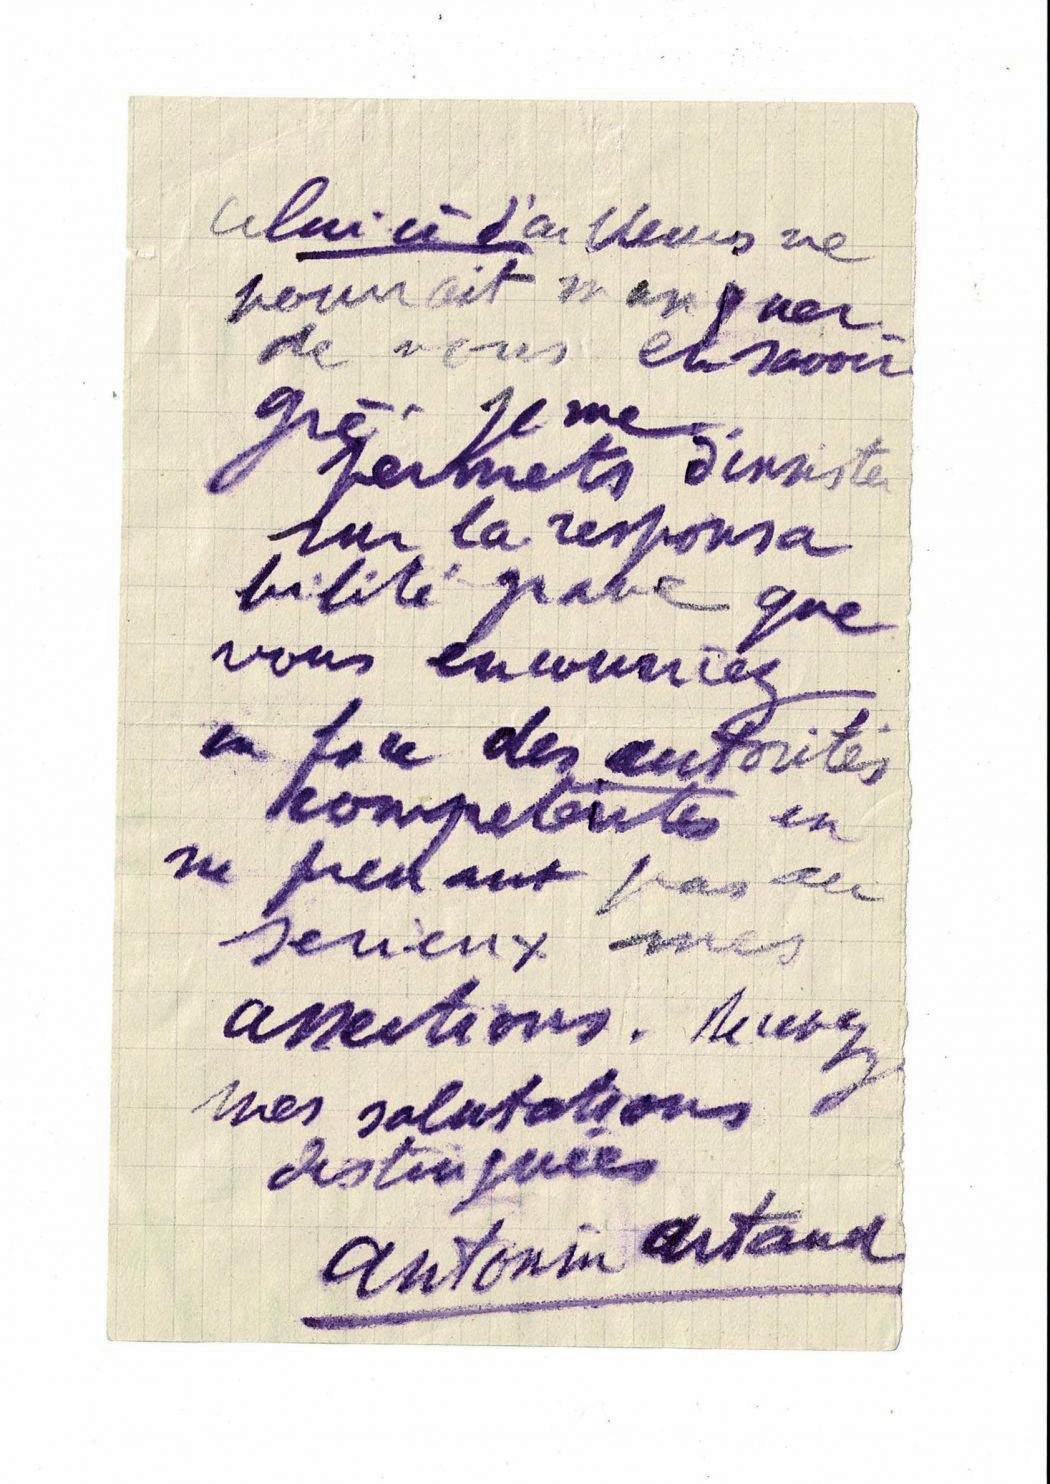 Celui-ci d'ailleurs ne
pourrait manquer
de vous en savoir
gré. Je me
permets d'insister
sur la responsa
bilité grave que
vous encourriez
en face des autorités
compétentes en
ne prenant pas au
serieux mes
assertions. Recevez
mes salutations
distinguées
Antonin Artaud